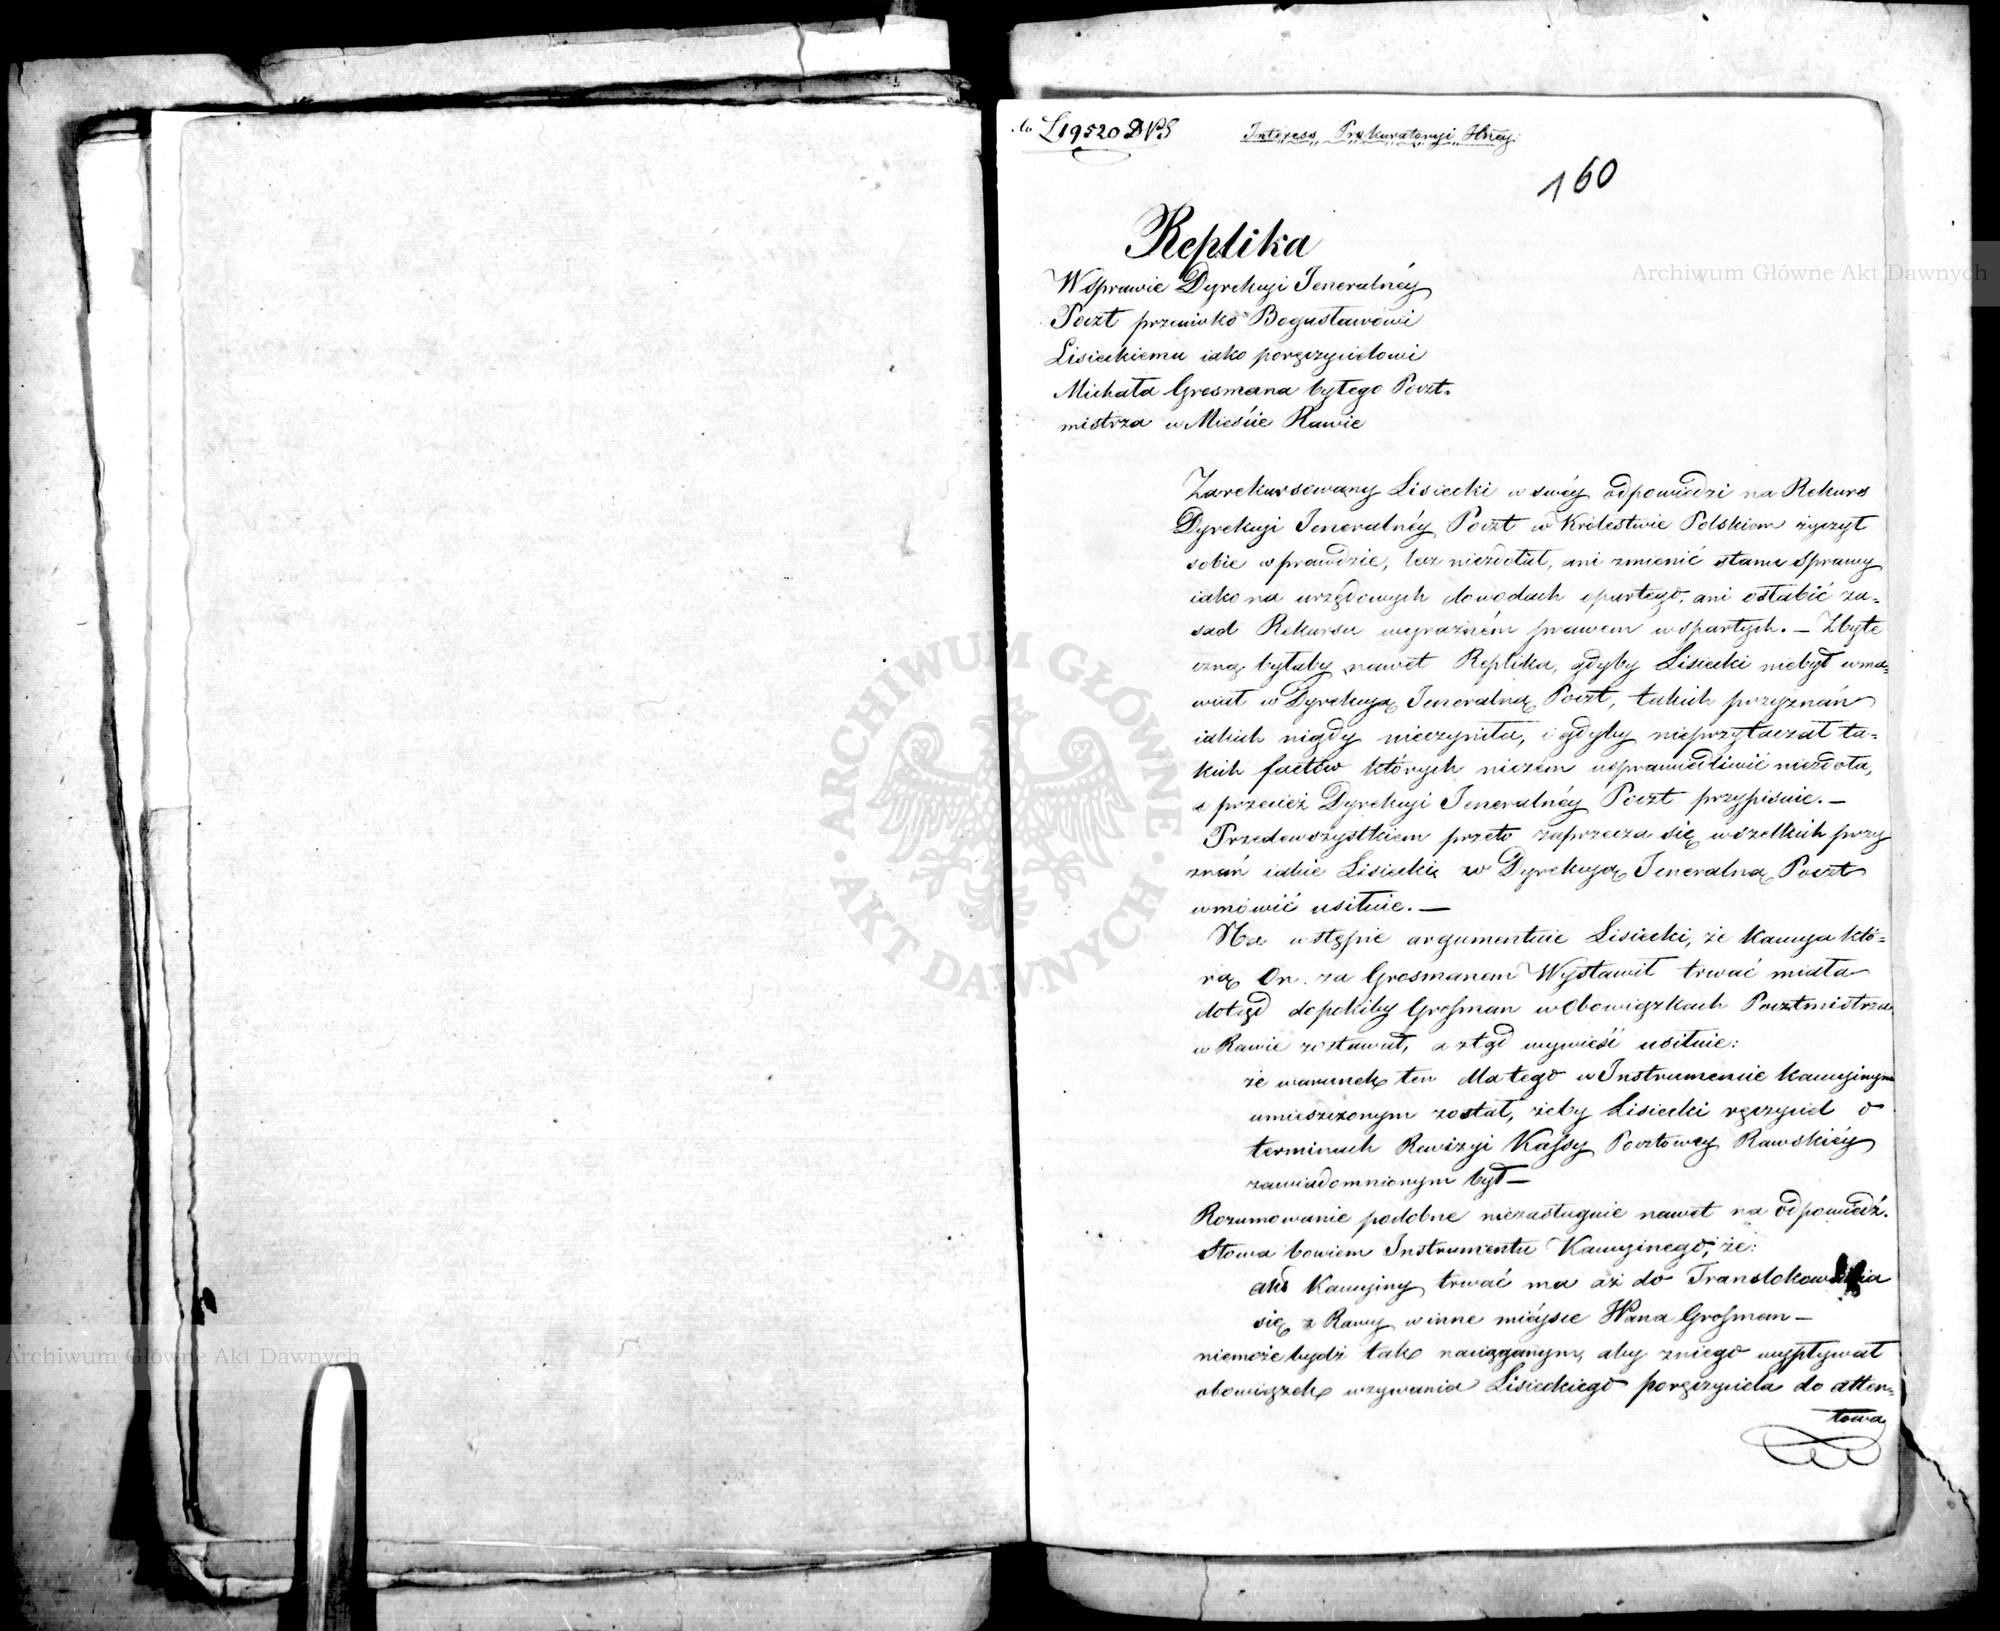 No L19520 DPS
Interess Prokuratoryi
160
Replika
W sprawie Dyrekcyi Jeneralnéy
Poczt przeciwko Bogusławowi
Lisieckiemu iako poręczycielowi
Michała Grosmana byłego Poczt-
mistrza w Mieście Rawie
Zarekursowany Lisiecki w swéy odpowiedzi na Rekurs
Dyrekcyi Jeneralnéy Poczt w Królestwie Polskiem życzył
sobie wprawdzie, lecz niezdołał, ani zmienić stanu Sprawy
iako na urzędowych dowodach opartego, ani osłabić za-
sad Rekursu wyraźném prawem wspartych. — Zbyte
czną byłaby nawet Replika, gdyby Lisiecki niebył wma-
wiał w Dyrekcyą Jeneralną Poczt, takich przyznań
iakich nigdy nieczyniła, i gdyby nieprzytaczał ta-
kich factów których niczém usprawiedliwić niezdoła,
a przecież Dyrekcyi Jeneralnéy Poczt przypisuie. —
Przedewszystkiem przeto zaprzecza się wszelkich przy
znań iakie Lisiecki w Dyrekcyą Jeneralną Poczt
wmówić usiłuie. —
Na wstępie argumentuie Lisiecki, że Kaucya któ-
rą On za Grosmanem Wystawił trwać miała
dotąd dopókiby Grosman w Obowiązkach Pocztmistrza
w Rawie zostawał, a ztąd wywieść usiłuie:
że warunek ten dla tego w Instrumencie Kaucyinym
umieszczonym został, żeby Lisiecki ręczyciel o
terminach Rewizyi Kassy Pocztowey Rawskiéy
zawiadomnionym był —
Rozumowanie podobne niezasługuie nawet na odpowiedź.
Słowa bowiem Instrumentu Kaucyinego, że:
akt Kaucyiny trwać ma aż do Translokowania
się z Rawy w inne miéysce WPana Grosman —
niemoże bydź tak naciąganym, aby zniego wypływał
obowiązek wzywania Lisieckiego poręczyciela do atten-
towa
Archiwum Główne Akt Dawnych
Archiwum Główne Akt Dawnych
ARCHIWUM GŁÓWNE · AKT DAWNYCH ·